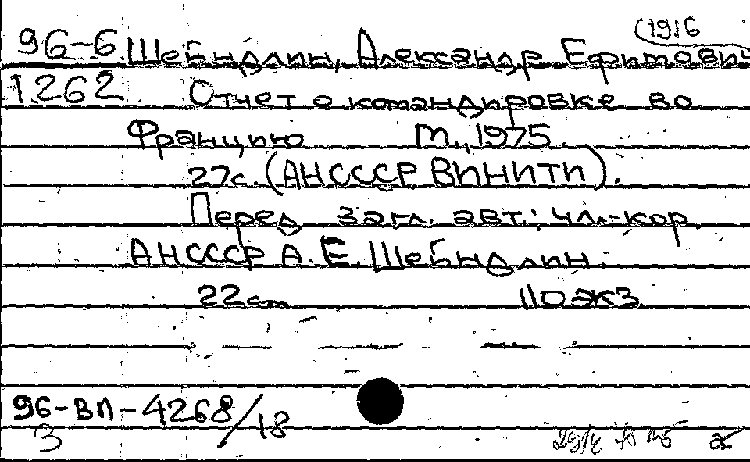 (1916
96-6 Шебындлин, Александр Ефимович
1262 Отчет о командировке во
Францию М., 1975.
27с. (АНСССР ВИНИТИ).
Перед загл. авт.: чл.-кор.
АНСССР А. Е. Шебындлин.
22см 110экз
96-ВЛ-4268/18
3